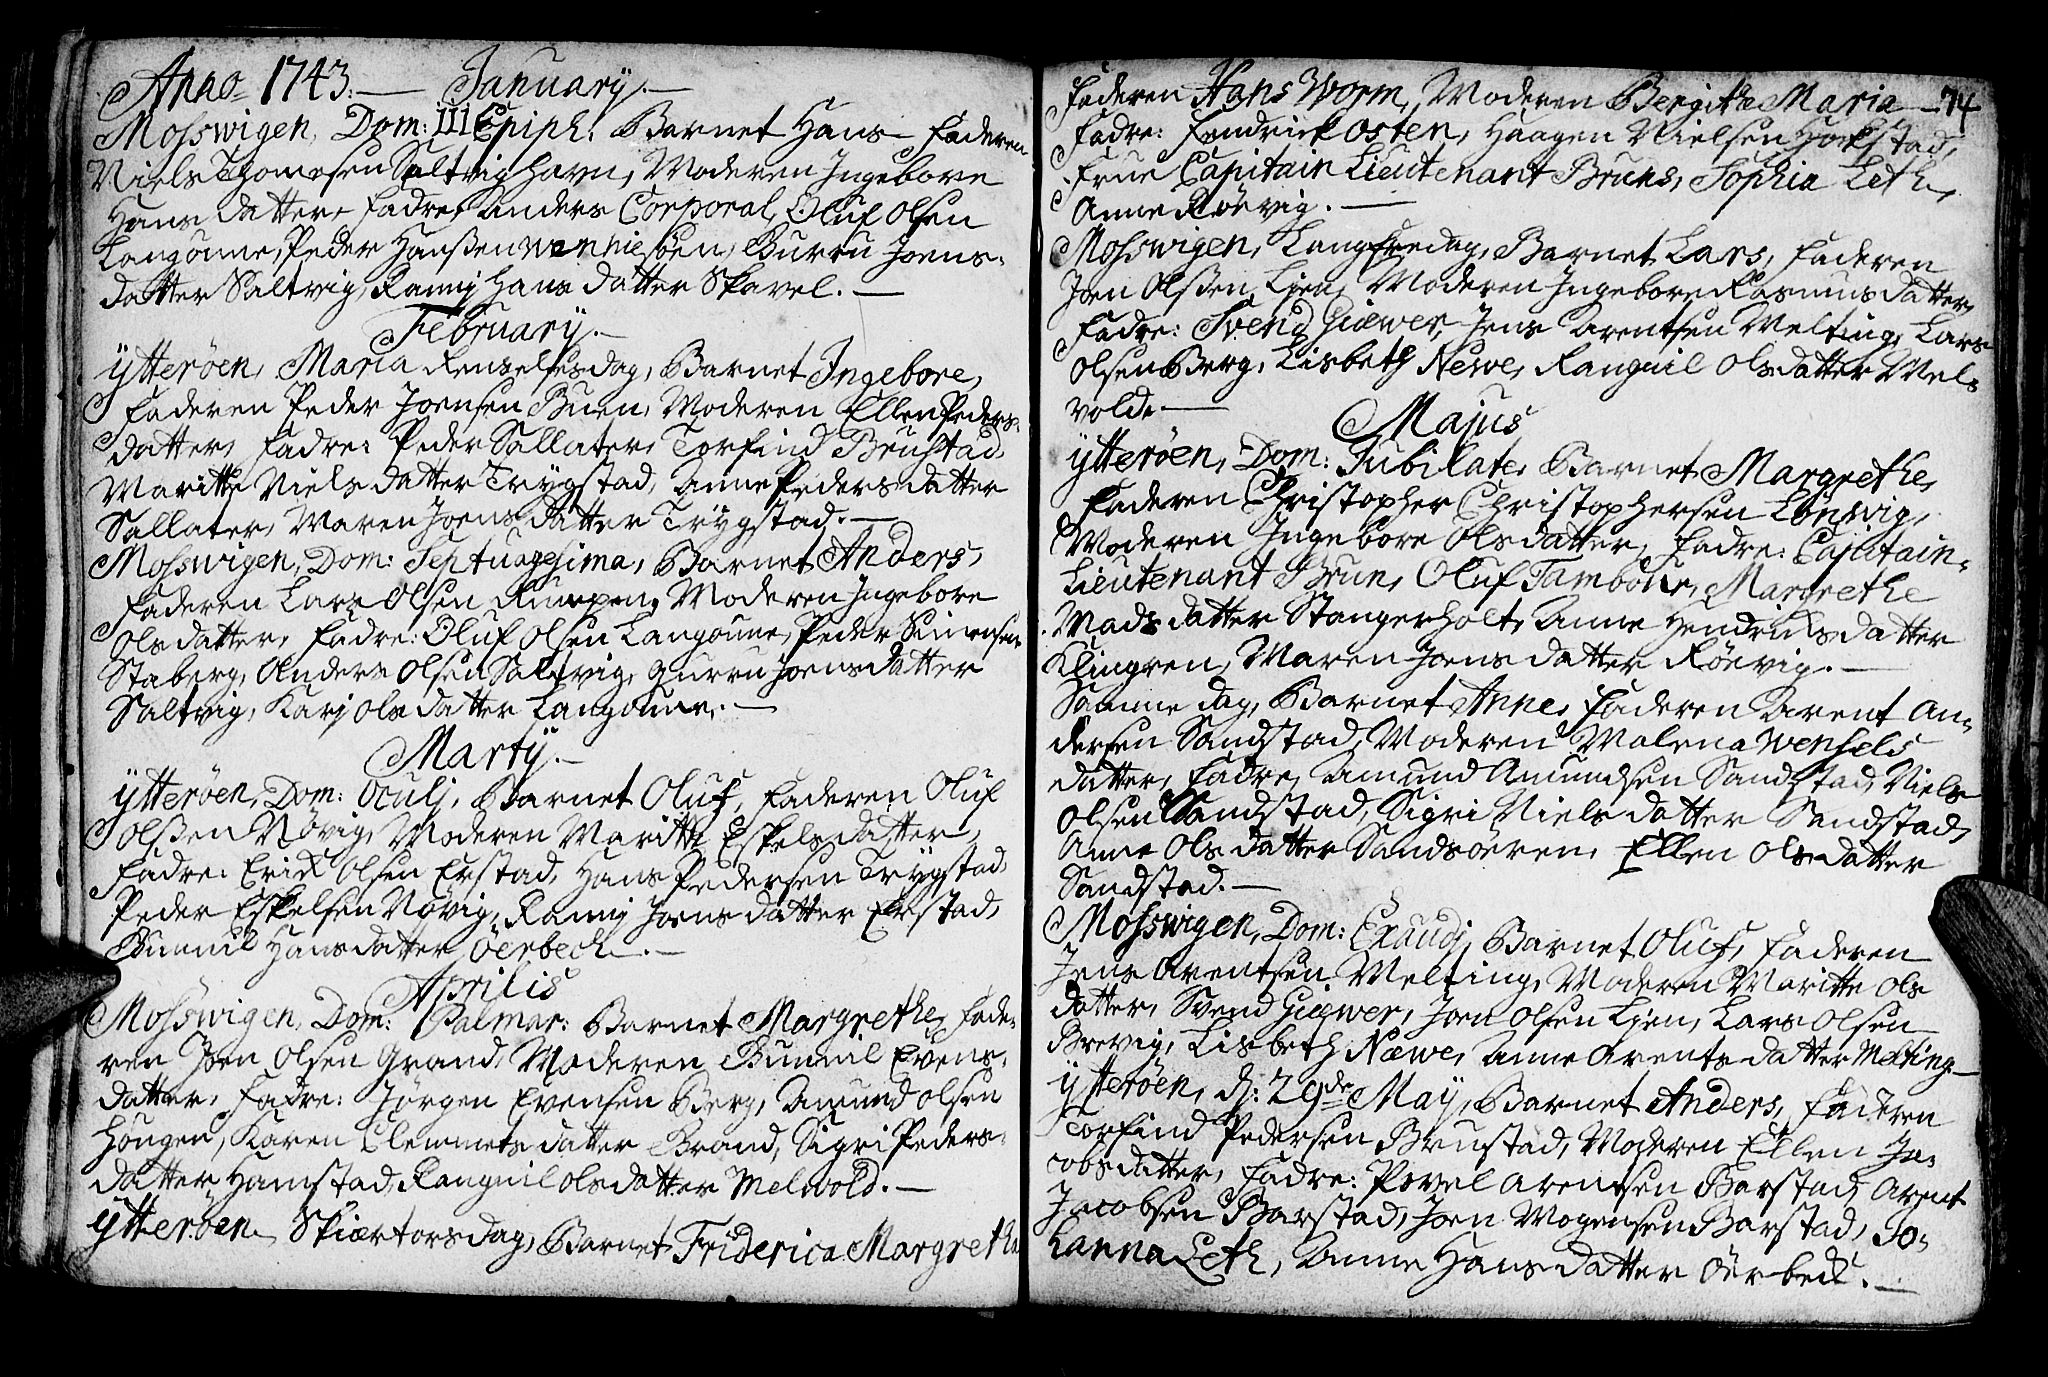 Anno 1743. — January. —
Mosswigen, Dom: III Epiph: Barnet Hans, Faderen
Niels Thomesen Saltvig havn, Moderen Ingebore
Hans datter, Fadre, Anders Corporal, Oluf Olsen
Langönne, Peder Hanßen Wennie söen, Burru Joens-
datter Saltvig, Rannj Hans datter Skavel. —
February. —
Ytterøen, Maria Renselses dag, Barnet Ingebore,
Faderen Peder Joensen Buen, Moderen Ellen Peders-
datter, Fadre: Peder Sallater, Torfind Brustad,
Maritte Niels datter Trygstad, Anne Peders datter
Sallater, Maren Joens datter Trygstad. —
Mosswigen, Dom: Septuagesima, Barnet Anders,
Faderen Lars Olsen, Moderen Ingebore
Ols datter, Fadre: Oluf Olsen Langönne, Peder Simensen
Staberg, Anders Olsen Saltvig, Gurru Joens datter
Saltvig, Karj Ols datter Langönne. —
Martij. —
Ytterøen, Dom: Oculj, Barnet Oluf, Faderen Oluf
Olßen Növig, Moderen Maritte Eskels datter,
Fadre: Erick Olsen Erstad, Hans Pedersen Trygstad,
Peder Eskelsen Növig, Rannj Joens datter Erstad,
Gunnil Hans datter Öerbeck. —
Aprilis
Mosswigen, Dom: Palmar: Barnet Margrethe, Fade-
ren Joen Olsen Grand, Moderen Gunnil Evens-
datter, Fadre: Jørgen Evensen Berg, Amund Olsen
Hougen, Karen Clemmets datter Brand, Sigri Peders-
datter Hamstad, Ranguil Ols datter Melwold. —
Ytterøen, Skiærtorsdag, Barnet Friderica Margretha
Faderen Hans Worm, Moderen Bergitte Maria — 74
Fadre: Fendrick Osten, Haagen Nielsen Hokstad,
Frue Capitain Lieutenant Bruns, Sophia Leth,
Anne Röevig. —
Mosswigen, Langfredag, Barnet Lars, Faderen
Joen Olßen Ljen, Moderen Ingebore Rasmus datter,
Fadre: Svend Giæwer, Jens Arentsen Melting, Lars
Olsen Berg, Lisbeth Newe, Ranguil Ols datter Mel-
volde —
Majus
Ytterøen, Dom: Jubilate, Barnet Margrethe,
Faderen Christopher Christophersen Lönwig,
Moderen Ingebore Ols datter, Fadre: Capitain-
Lieutenant Brun, Oluf Tambour, Margrethe
Mads datter Stangerholt, Anne Hendricks datter
Klingren, Maren Joens datter Röevig. —
Samme dag, Barnet Anne, Faderen Arent An-
dersen Sandstad, Moderen Malena Wensels
datter, Fadre, Amund Amundsen Sandstad, Niels
Olsen Sandstad, Sigri Niels datter Sandstad,
Anne Ols datter Sandsöeren, Ellen Ols datter
Sandstad. —
Mosswigen, Dom: Exaudj, Barnet Oluf, Faderen
Jens Arentsen Melting, Moderen Maritte Ols
datter, Svend Giæwer, Joen Olsen Ljen, Lars Olsen
Brevig, Lisbeth Næwe, Anne Arents datter Melting —
Ytterøen, d: 29de May, Barnet Anders, Faderen
Torfind Pedersen Brustad, Moderen Ellen Ja-
cobs datter, Fadre: Povel Arentsen Barstad, Arent
Jacobsen Barstad, Joen Mogensen Barstad, Jo-
hanna Leth, Anne Hans datter Öerbeck. —